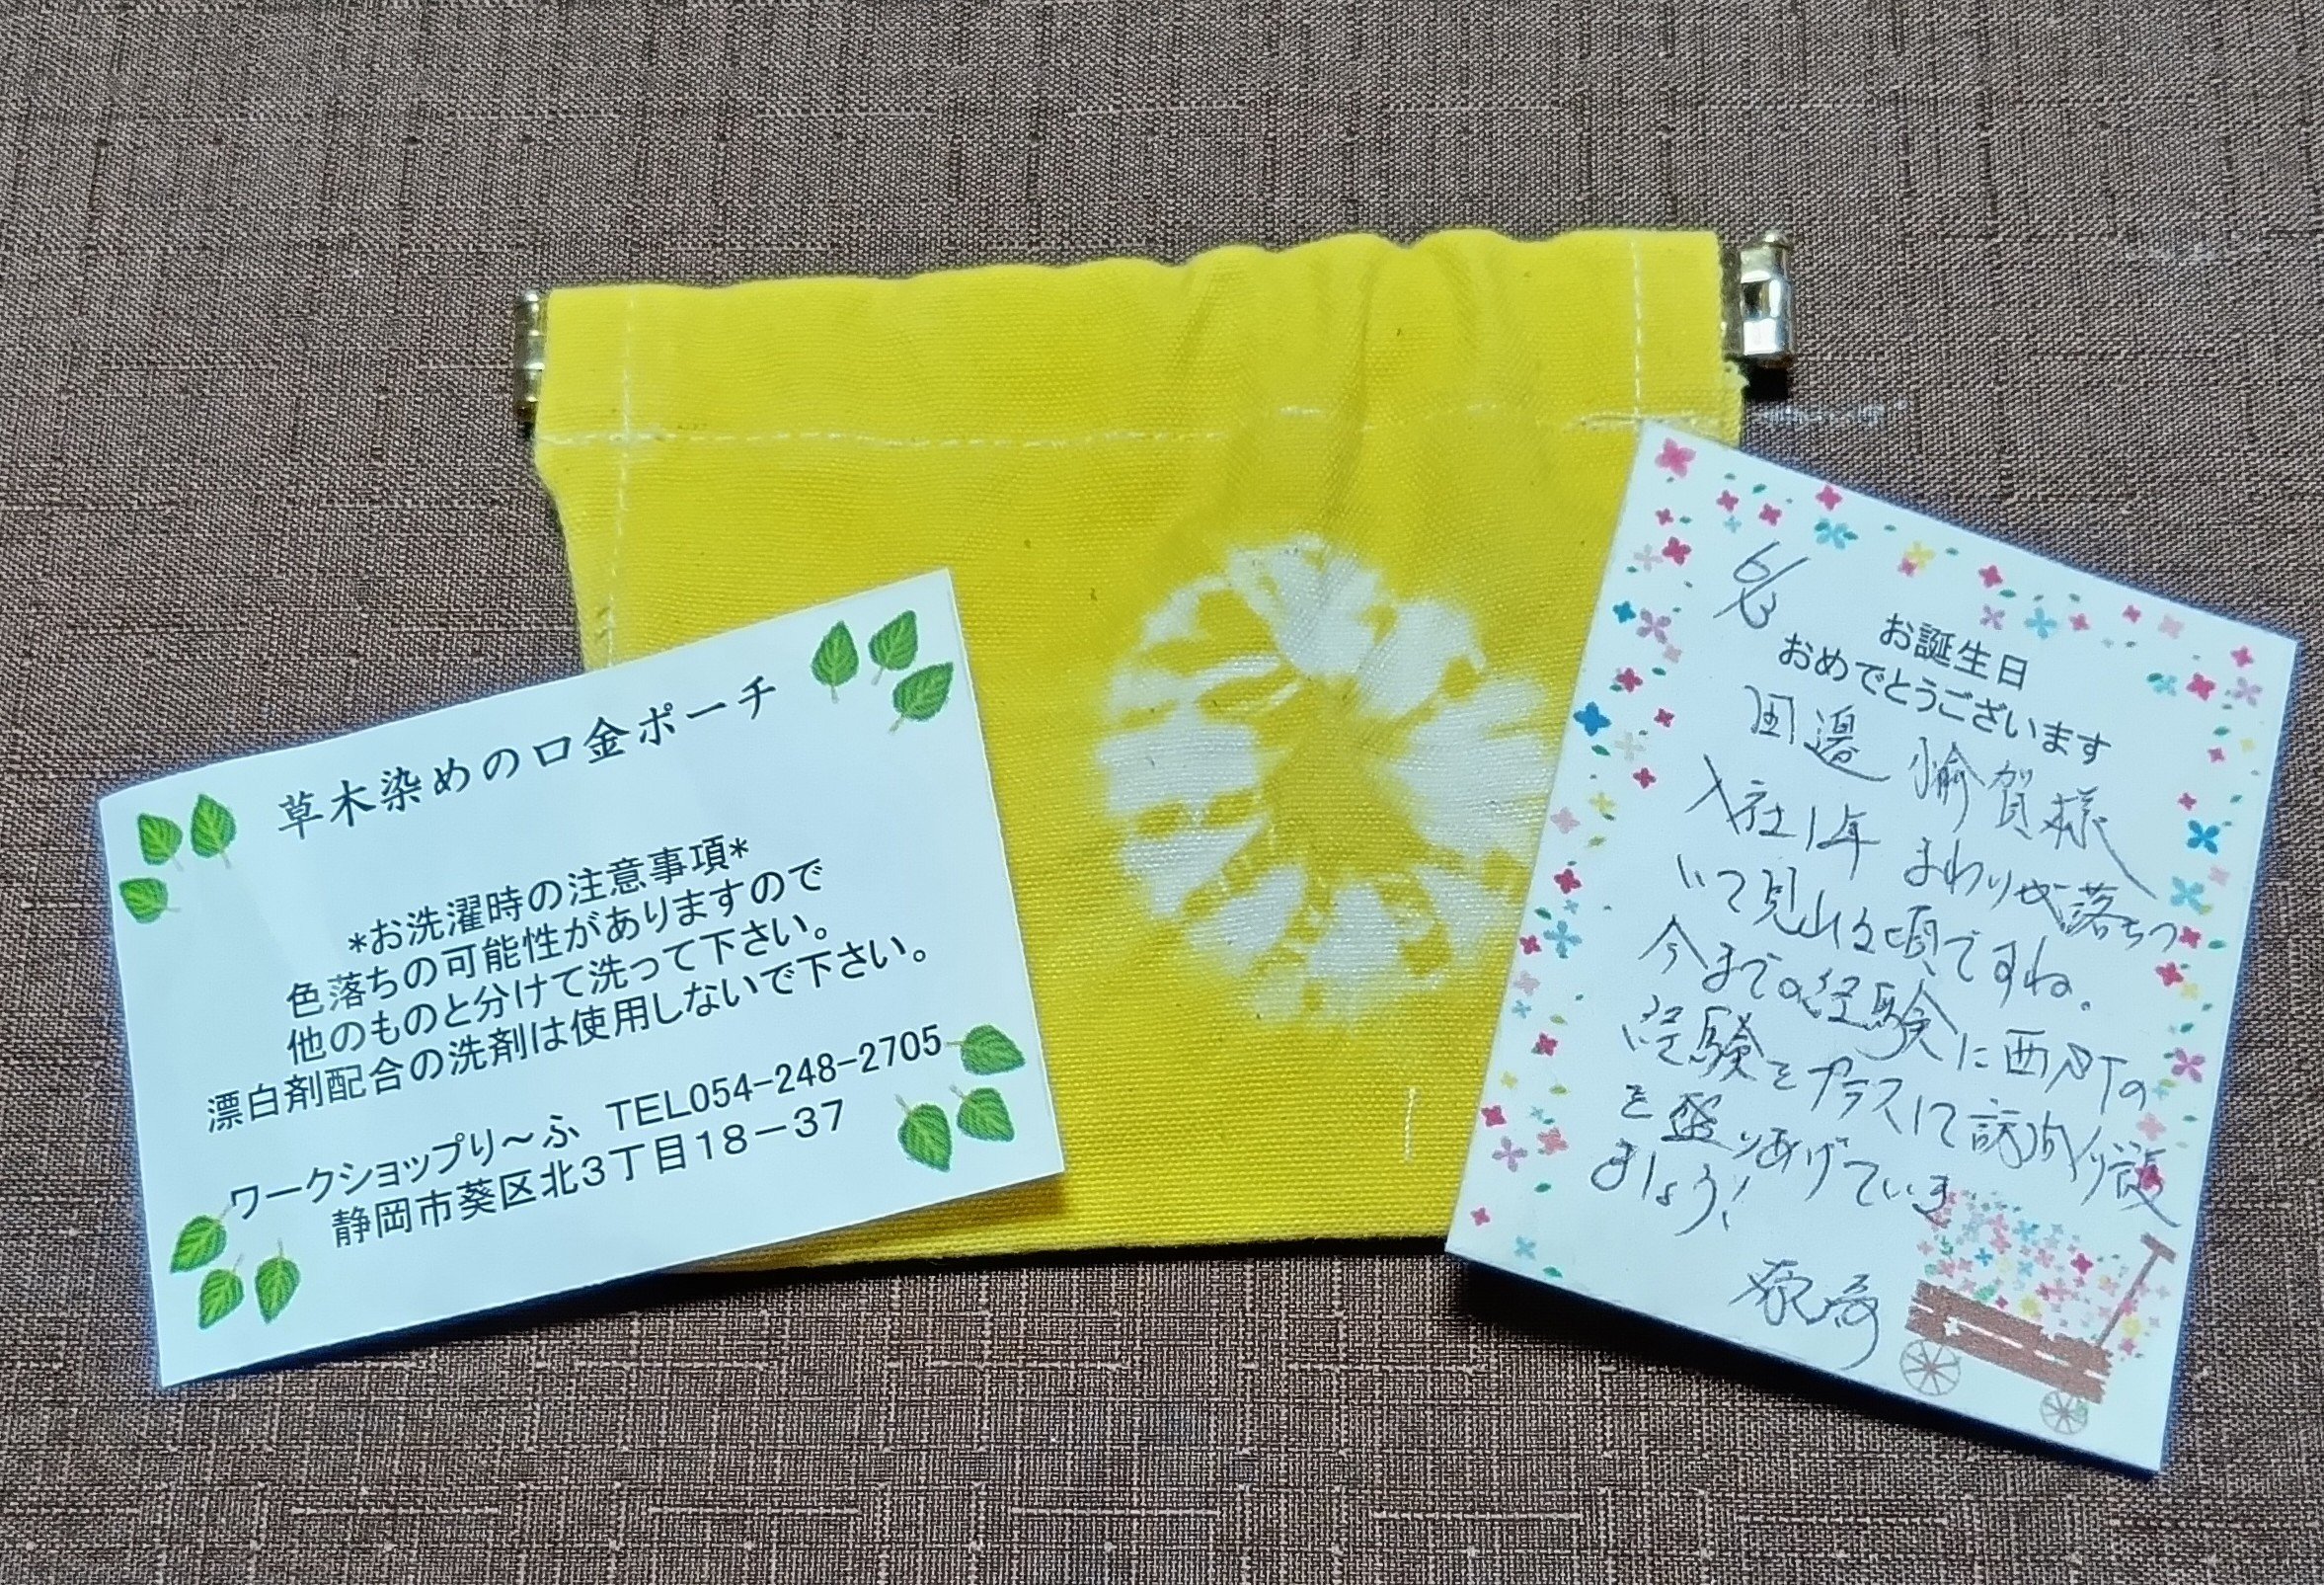 草木染めの口金ポーチ
*お洗濯時の注意事項*
色落ちの可能性がありますので
他のものと分けて洗って下さい。
漂白剤配合の洗剤は使用しないで下さい。
ワークショップり～ふ TEL054-248-2705
静岡市葵区北3丁目18－37
6/3
お誕生日
おめでとうございます
田邊 愉賀様
入社1年 まわりが落ちつ
いて見れる頃ですね。
今までの経験に西町の
経験をプラスして訪
を盛りあげていき
ましょう!